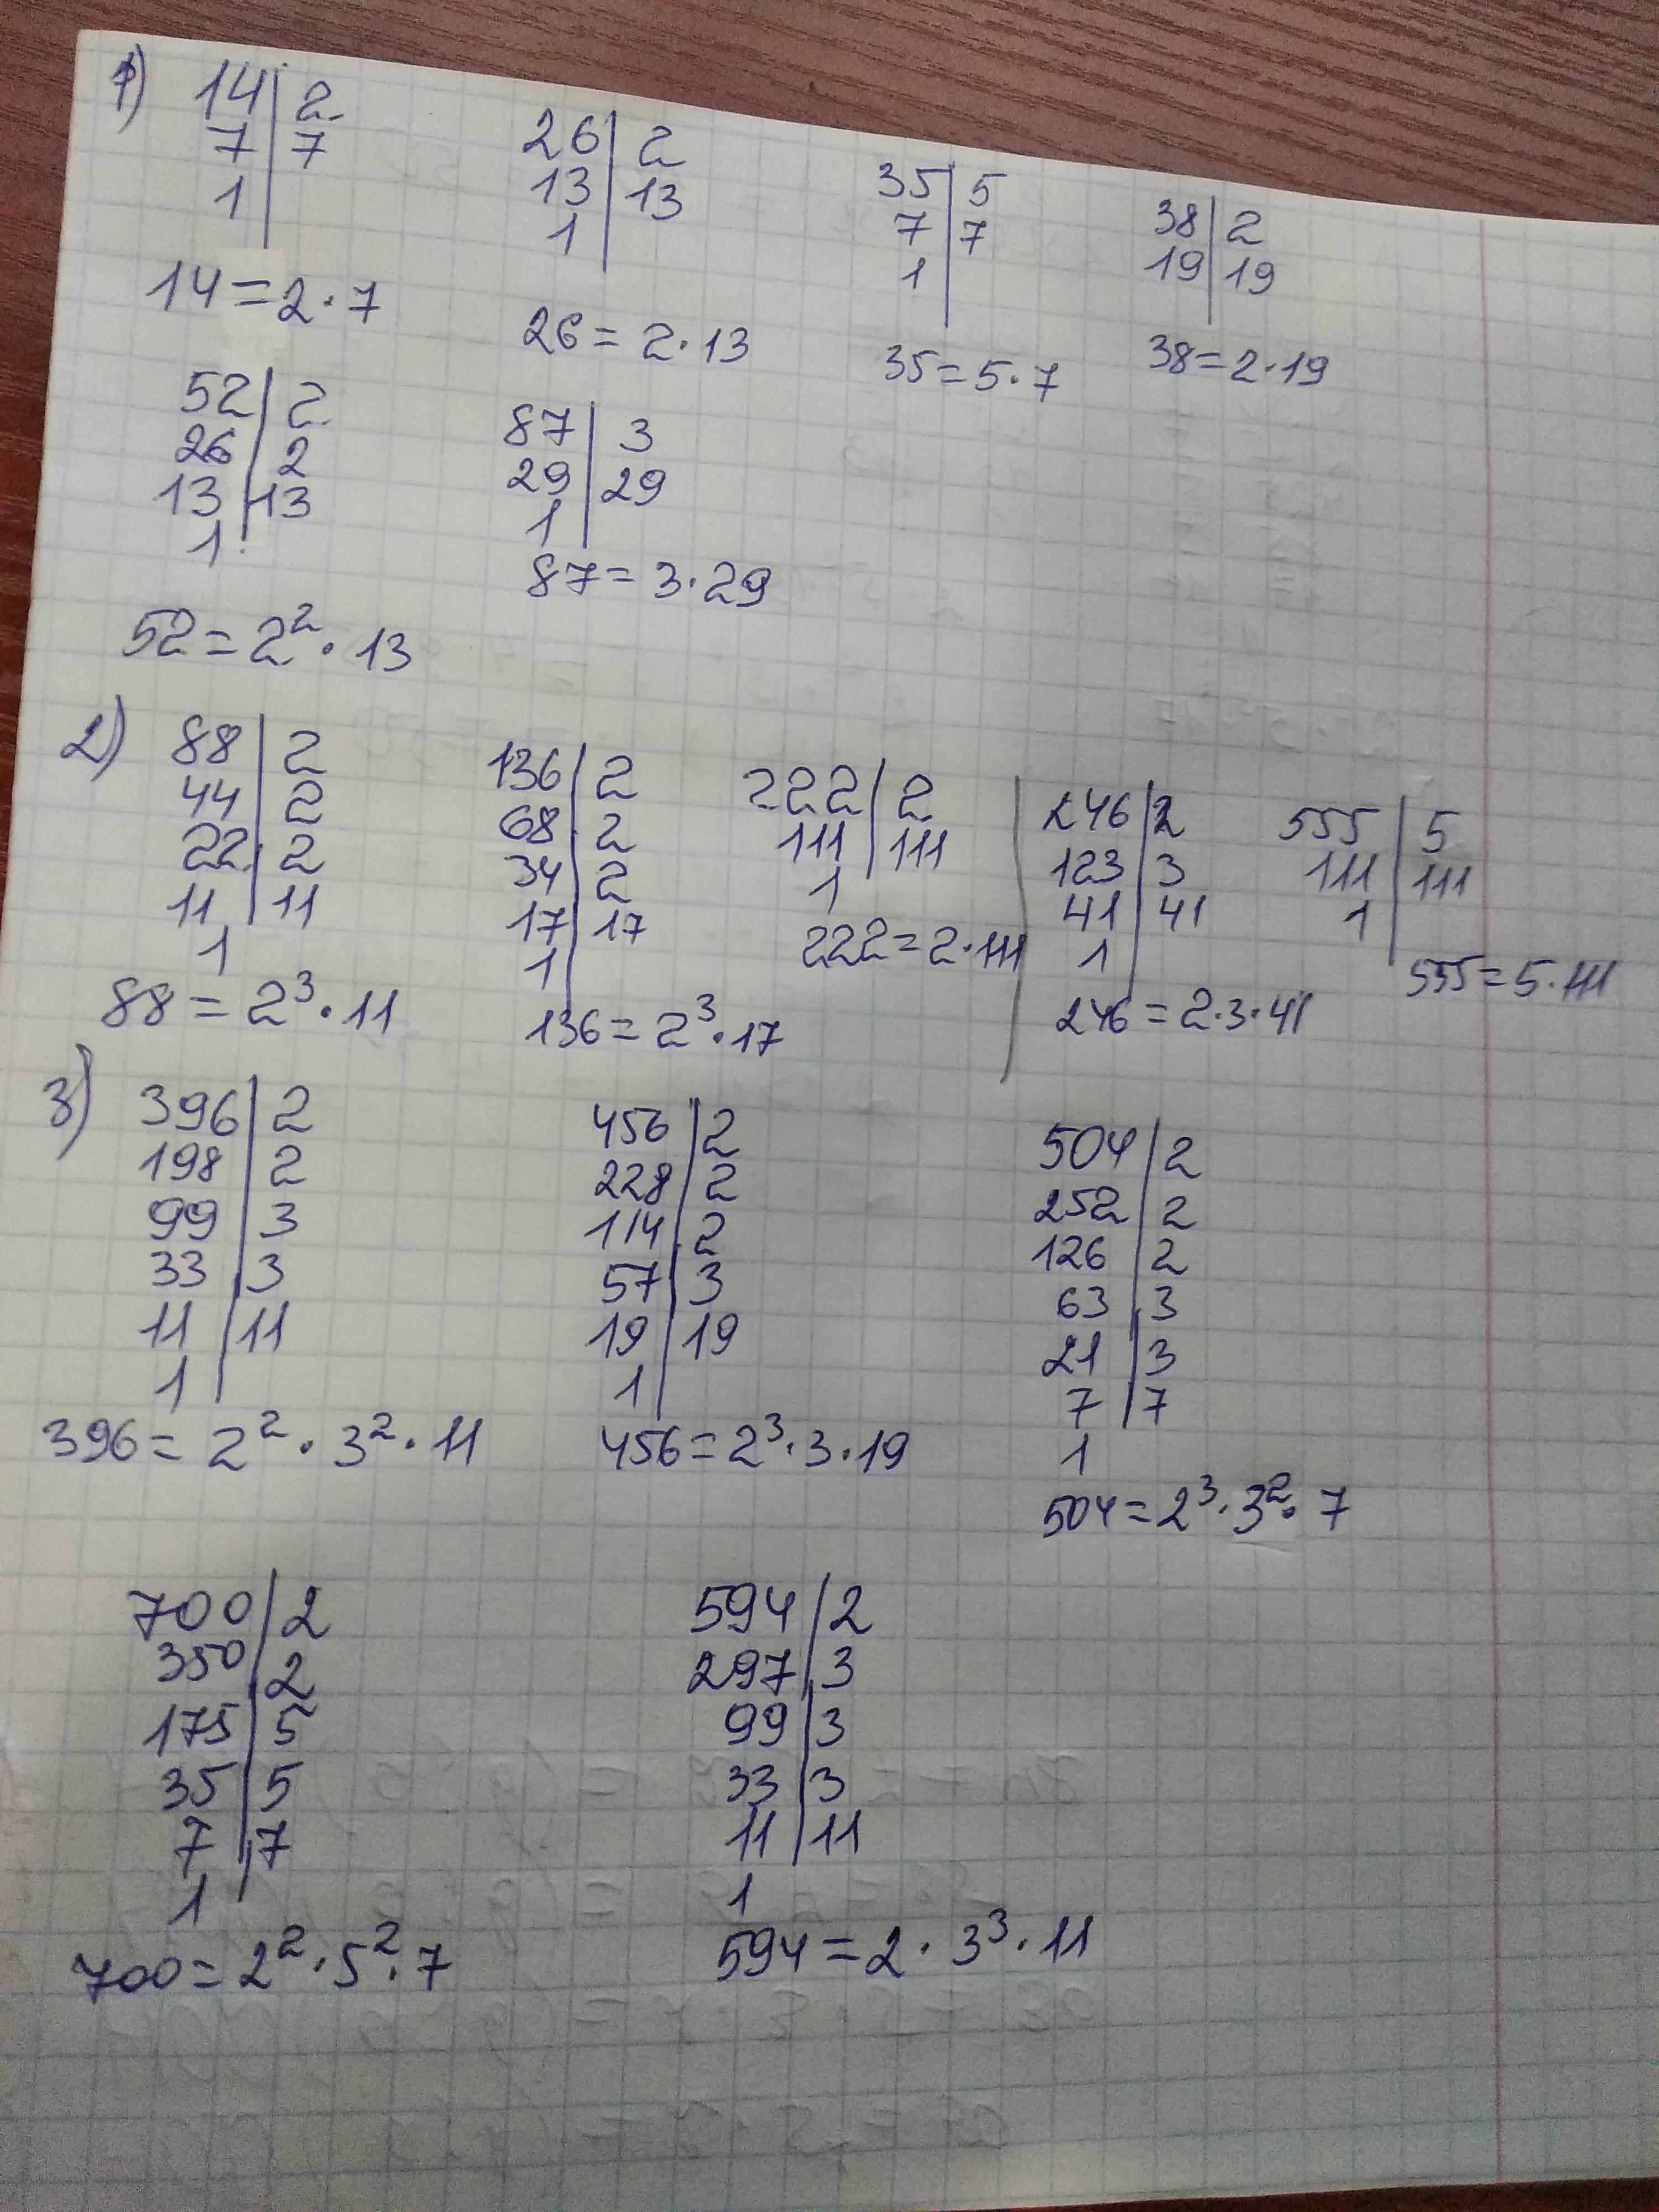 1) 14 | 2
7 | 7
1
14 = 2 · 7
26 | 2
13 | 13
1
26 = 2 · 13
35 | 5
7 | 7
1
35 = 5 · 7
38 | 2
19 | 19
38 = 2 · 19
52 | 2
26 | 2
13 | 13
1
52 = 2² · 13
87 | 3
29 | 29
1
87 = 3 · 29
2) 88 | 2
44 | 2
22 | 2
11 | 11
1
88 = 2³ · 11
136 | 2
68 | 2
34 | 2
17 | 17
1
136 = 2³ · 17
222 | 2
111 | 111
1
222 = 2 · 111
246 | 2
123 | 3
41 | 41
1
246 = 2 · 3 · 41
555 | 5
111 | 111
1
555 = 5 · 111
3) 396 | 2
198 | 2
99 | 3
33 | 3
11 | 11
1
396 = 2² · 3² · 11
456 | 2
228 | 2
114 | 2
57 | 3
19 | 19
1
456 = 2³ · 3 · 19
504 | 2
252 | 2
126 | 2
63 | 3
21 | 3
7 | 7
1
504 = 2³ · 3² · 7
700 | 2
350 | 2
175 | 5
35 | 5
7 | 7
1
700 = 2² · 5² · 7
594 | 2
297 | 3
99 | 3
33 | 3
11 | 11
1
594 = 2 · 3³ · 11